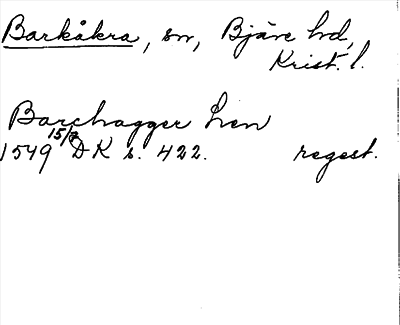 Barkåkra, sn, Bjäre hd,
Krist. l.
Barchagger hen
1549 15/3 DK s. 422. regest.